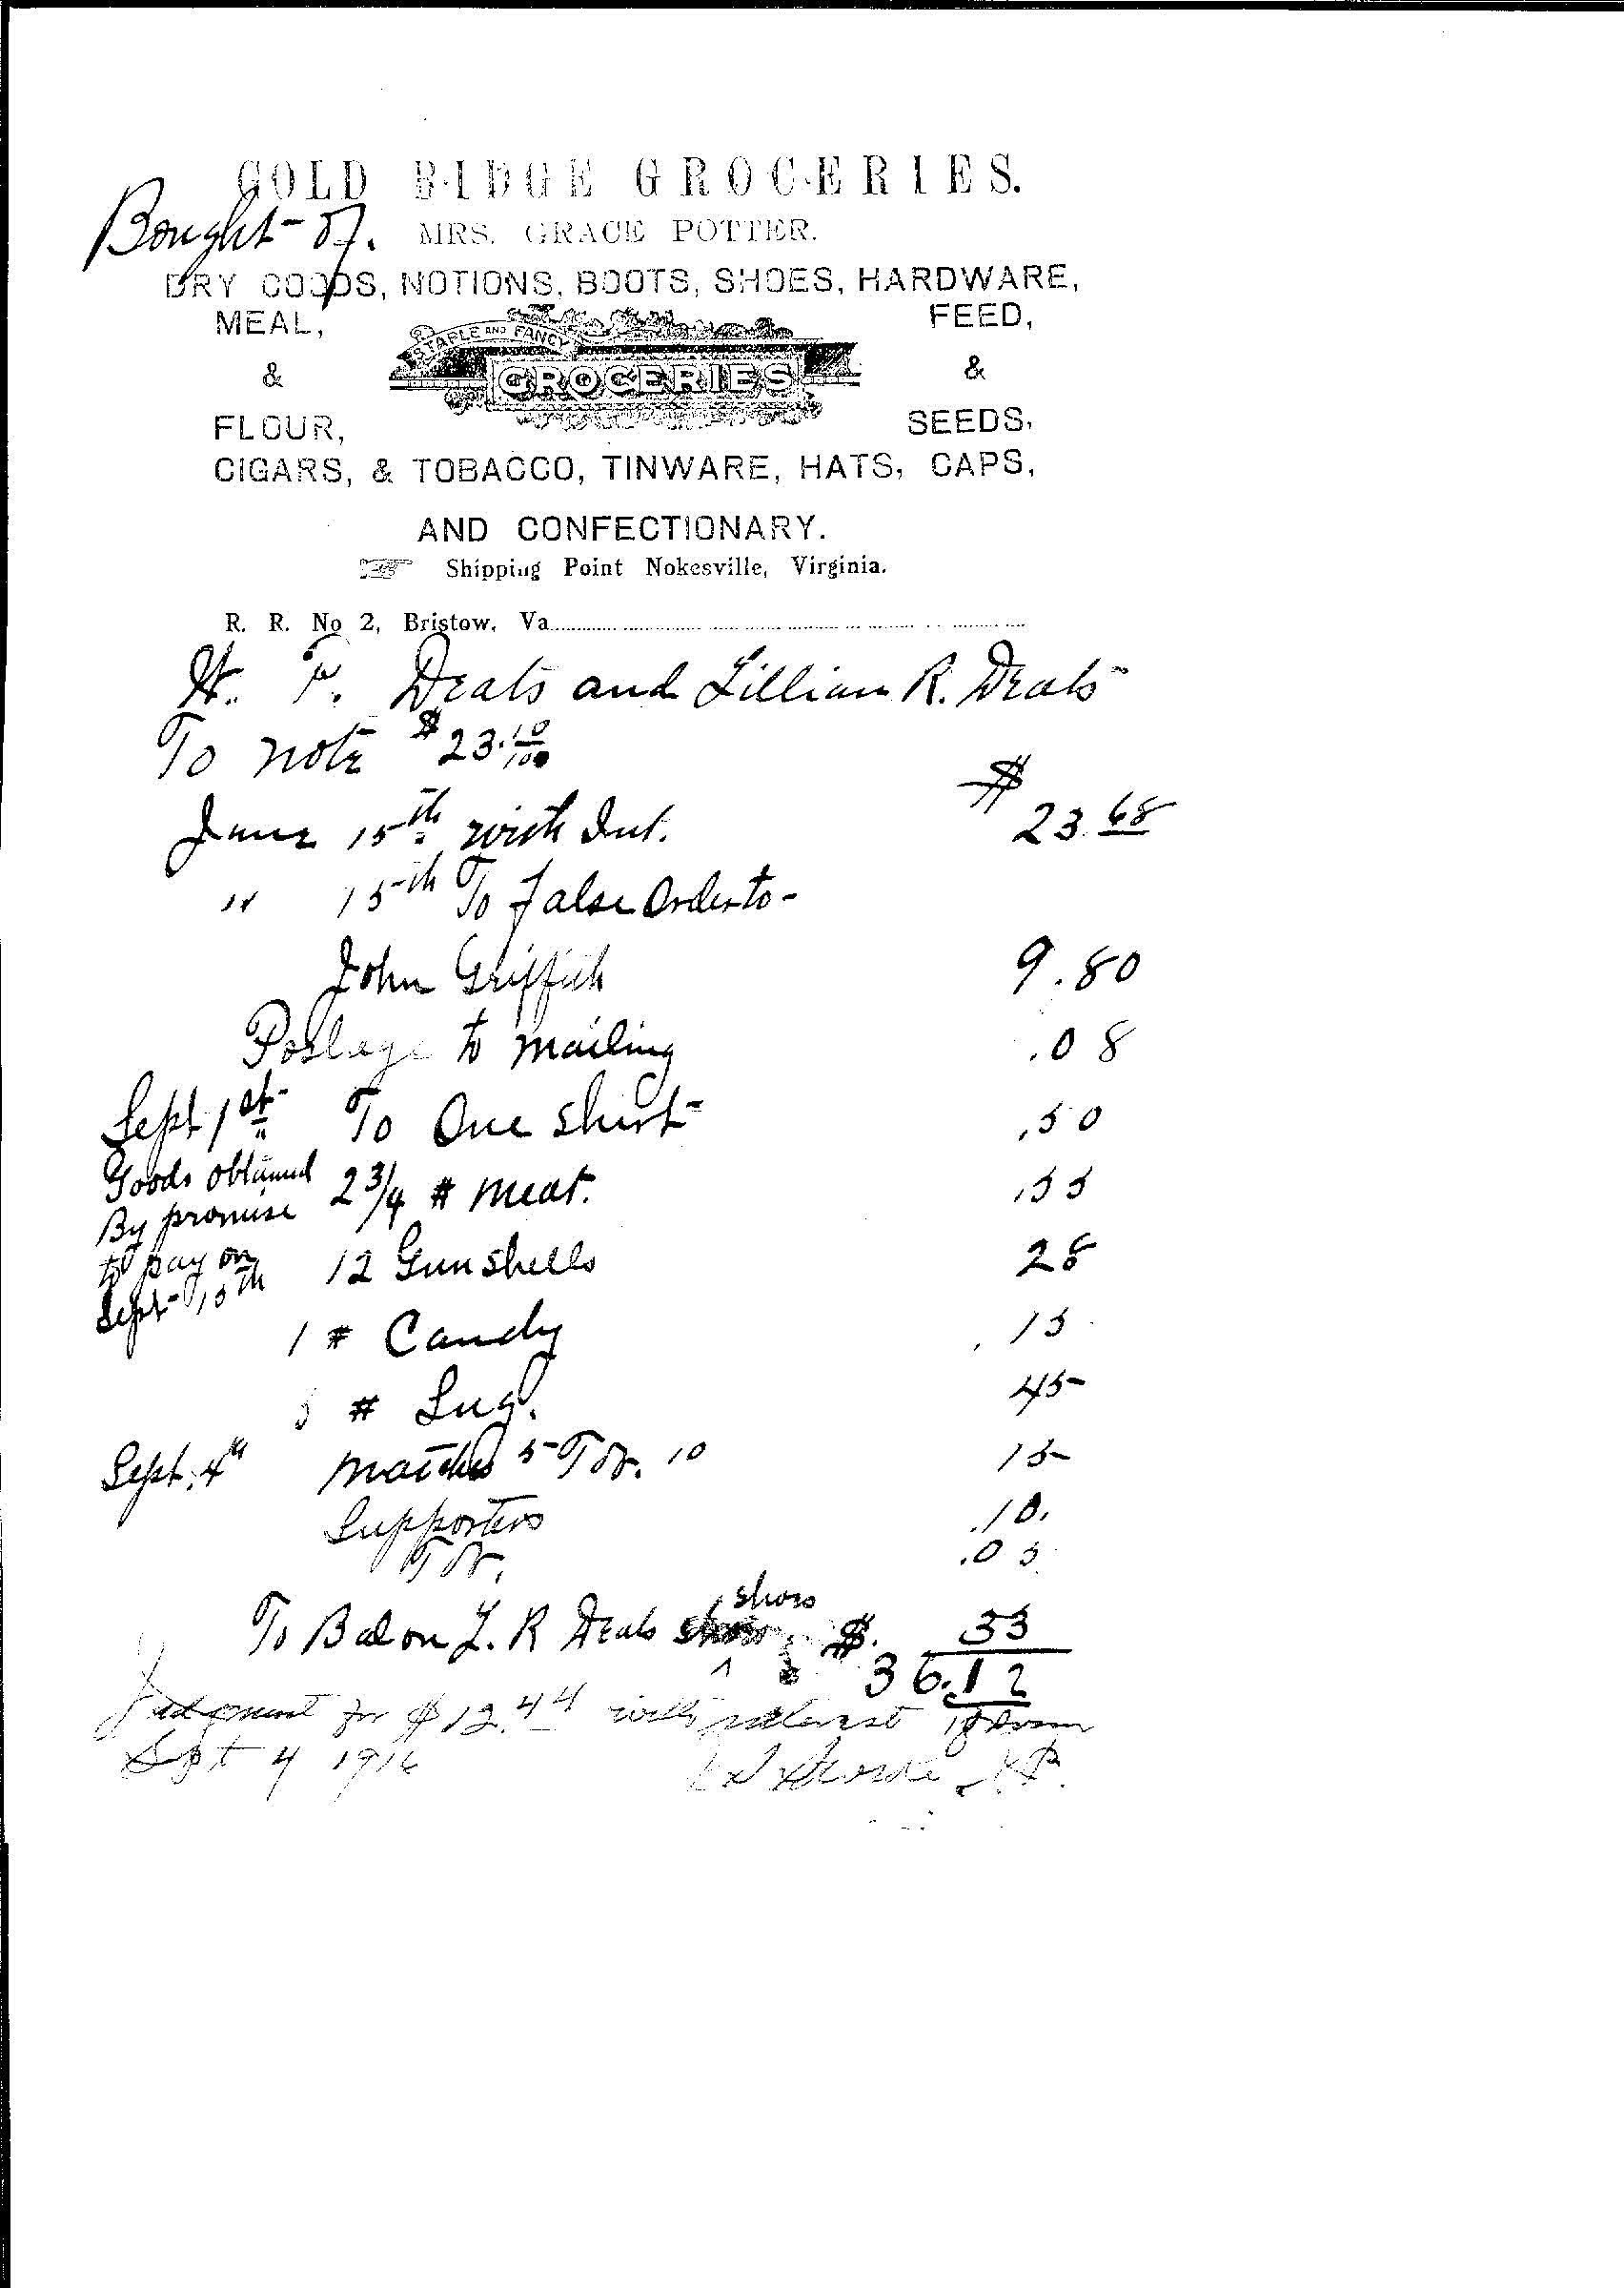 GOLD RIDGE GROCERIES.
Bought of. MRS. GRACE POTTER.
DRY GOODS, NOTIONS, BOOTS, SHOES, HARDWARE,
MEAL, FEED,
STAPLE AND FANCY
& GROCERIES &
FLOUR, SEEDS,
CIGARS, & TOBACCO, TINWARE, HATS, CAPS,
AND CONFECTIONARY.
Shipping Point Nokesville, Virginia.
R. R. No 2, Bristow, Va
W. F. Deats and Lillian R. Deats
To note $23.10/100
June 15th with Int. $23.68
" 15th To false Order to-
John Griffith 9.80
Postage to mailing .08
Sept 1st To One Shirt .50
Goods obtained 2 3/4 # meat. .55
By promise
to pay on 12 Gun Shells 28
Sept 15th
1 # Candy .15
# Sug. 45
Sept. 4th matches 5 Tob. 10 15
Supporters .10.
Tob. .05
To Bal on L. R Deats shoes $. 33
36.12
Judgment for $12.44 with interest from
Sept 4 1916 J.P.